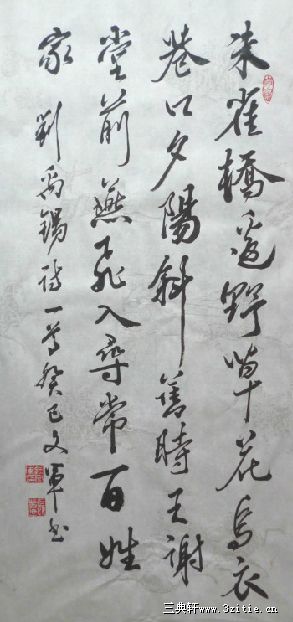 朱雀橋邊野草花烏衣
巷口夕陽斜舊時王謝
堂前燕飛入尋常百姓
家 劉禹錫詩一首癸巳文軍书
三典轩www.3zitie.cn